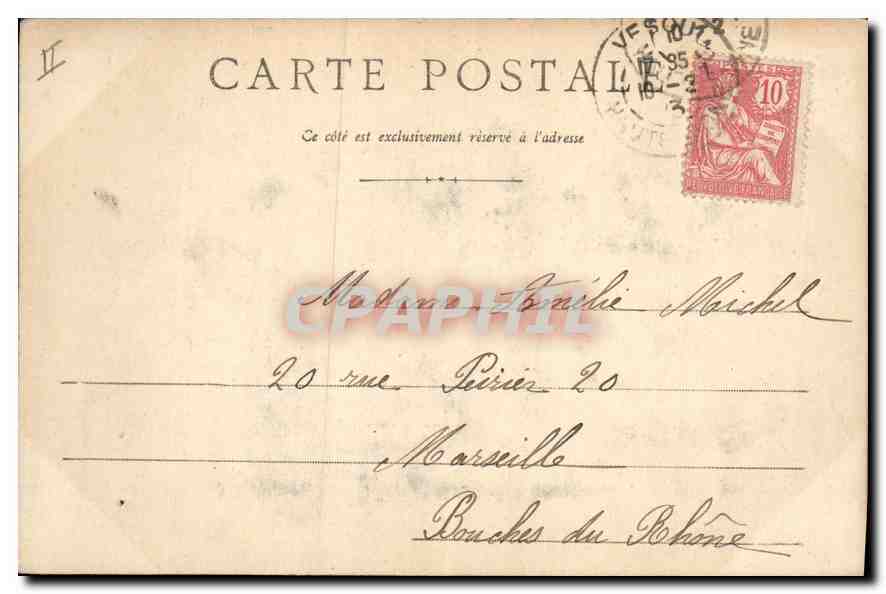 II
CARTE POSTALE
VESOUL
10
Ce côté est exclusivement réservé à l'adresse
REPUBLIQUE FRANÇAISE
Madame Amélie Michel
CPAPHIL
20 rue Périer 20
Marseille
Bouches du Rhône